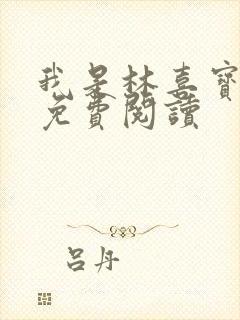 我是林喜寶
免費閱讀
呂丹